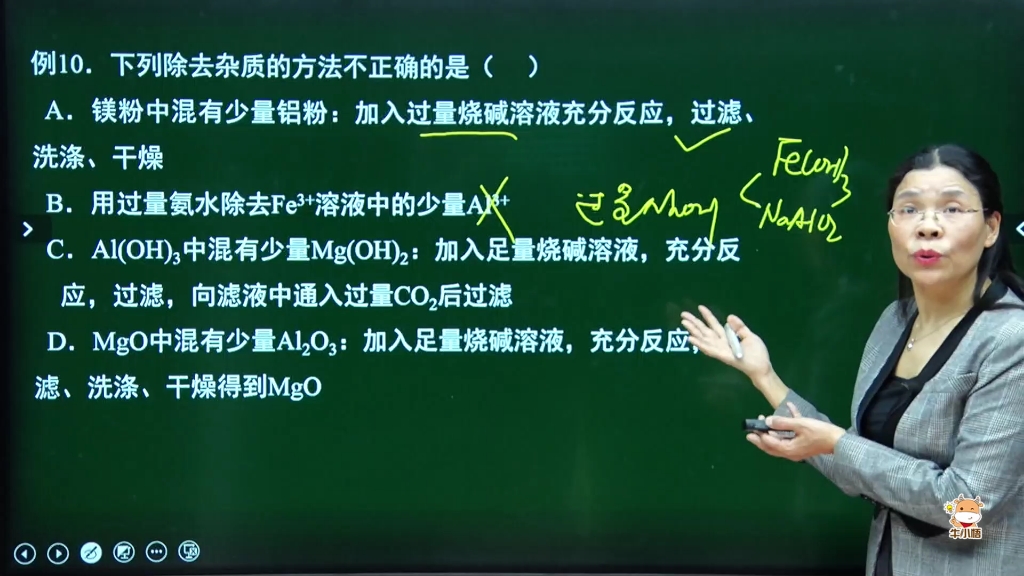 例10．下列除去杂质的方法不正确的是（　）
A．镁粉中混有少量铝粉：加入过量烧碱溶液充分反应，过滤、
洗涤、干燥
B．用过量氨水除去Fe³⁺溶液中的少量Al³⁺
过量NaOH
Fe(OH)3
NaAlO2
C．Al(OH)₃中混有少量Mg(OH)₂：加入足量烧碱溶液，充分反
应，过滤，向滤液中通入过量CO₂后过滤
D．MgO中混有少量Al₂O₃：加入足量烧碱溶液，充分反应，
滤、洗涤、干燥得到MgO
牛小悟